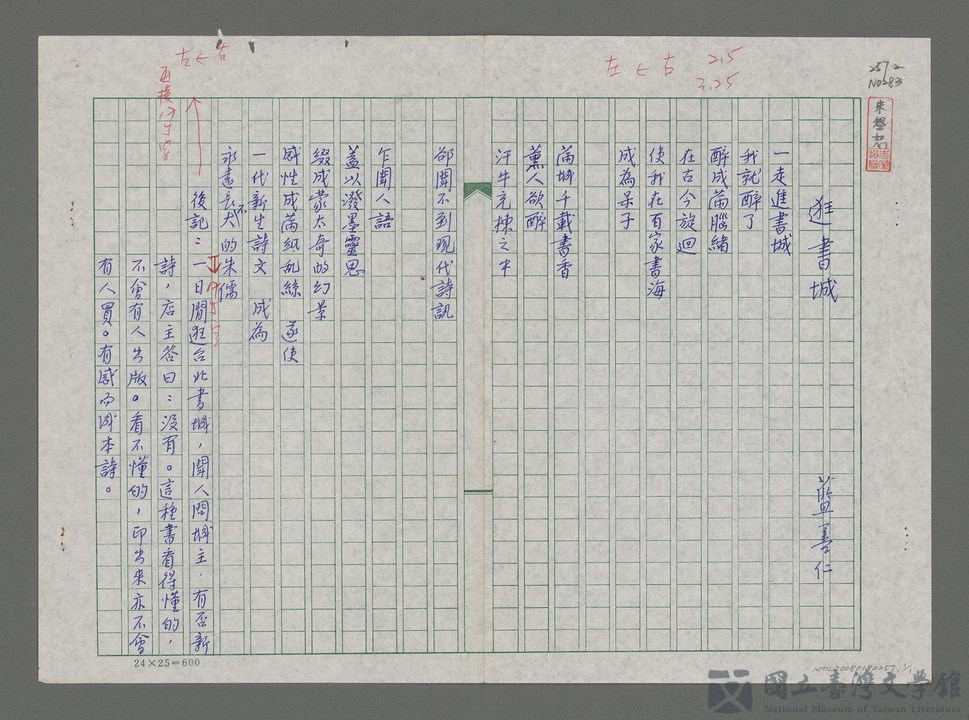 逛書城
藍善仁
一走進書城
我就醉了
醉成滿腦緒
在古今旋迴
使我在百家書海
成為呆子
滿城千載書香
薰人欲醉
汗牛充棟之中
卻聞不到現代詩訊
乍聞人語
蓋以潑墨靈思
綴成蒙太奇的幻景
感性成滿紙亂絲 遂使
一代新生詩文 成為
永遠長不大的朱儒
後記：一日閒逛台北書城，聞人問城主．有否新
詩，店主答曰：沒有。這種書看得懂的，
不會有人出版。看不懂的，印出來亦不會
有人買。有感而成本詩。
左←右
2.5
3.25
257-2
NO283
左←右
24×25=600
國立臺灣文學館
National Museum of Taiwan Literature